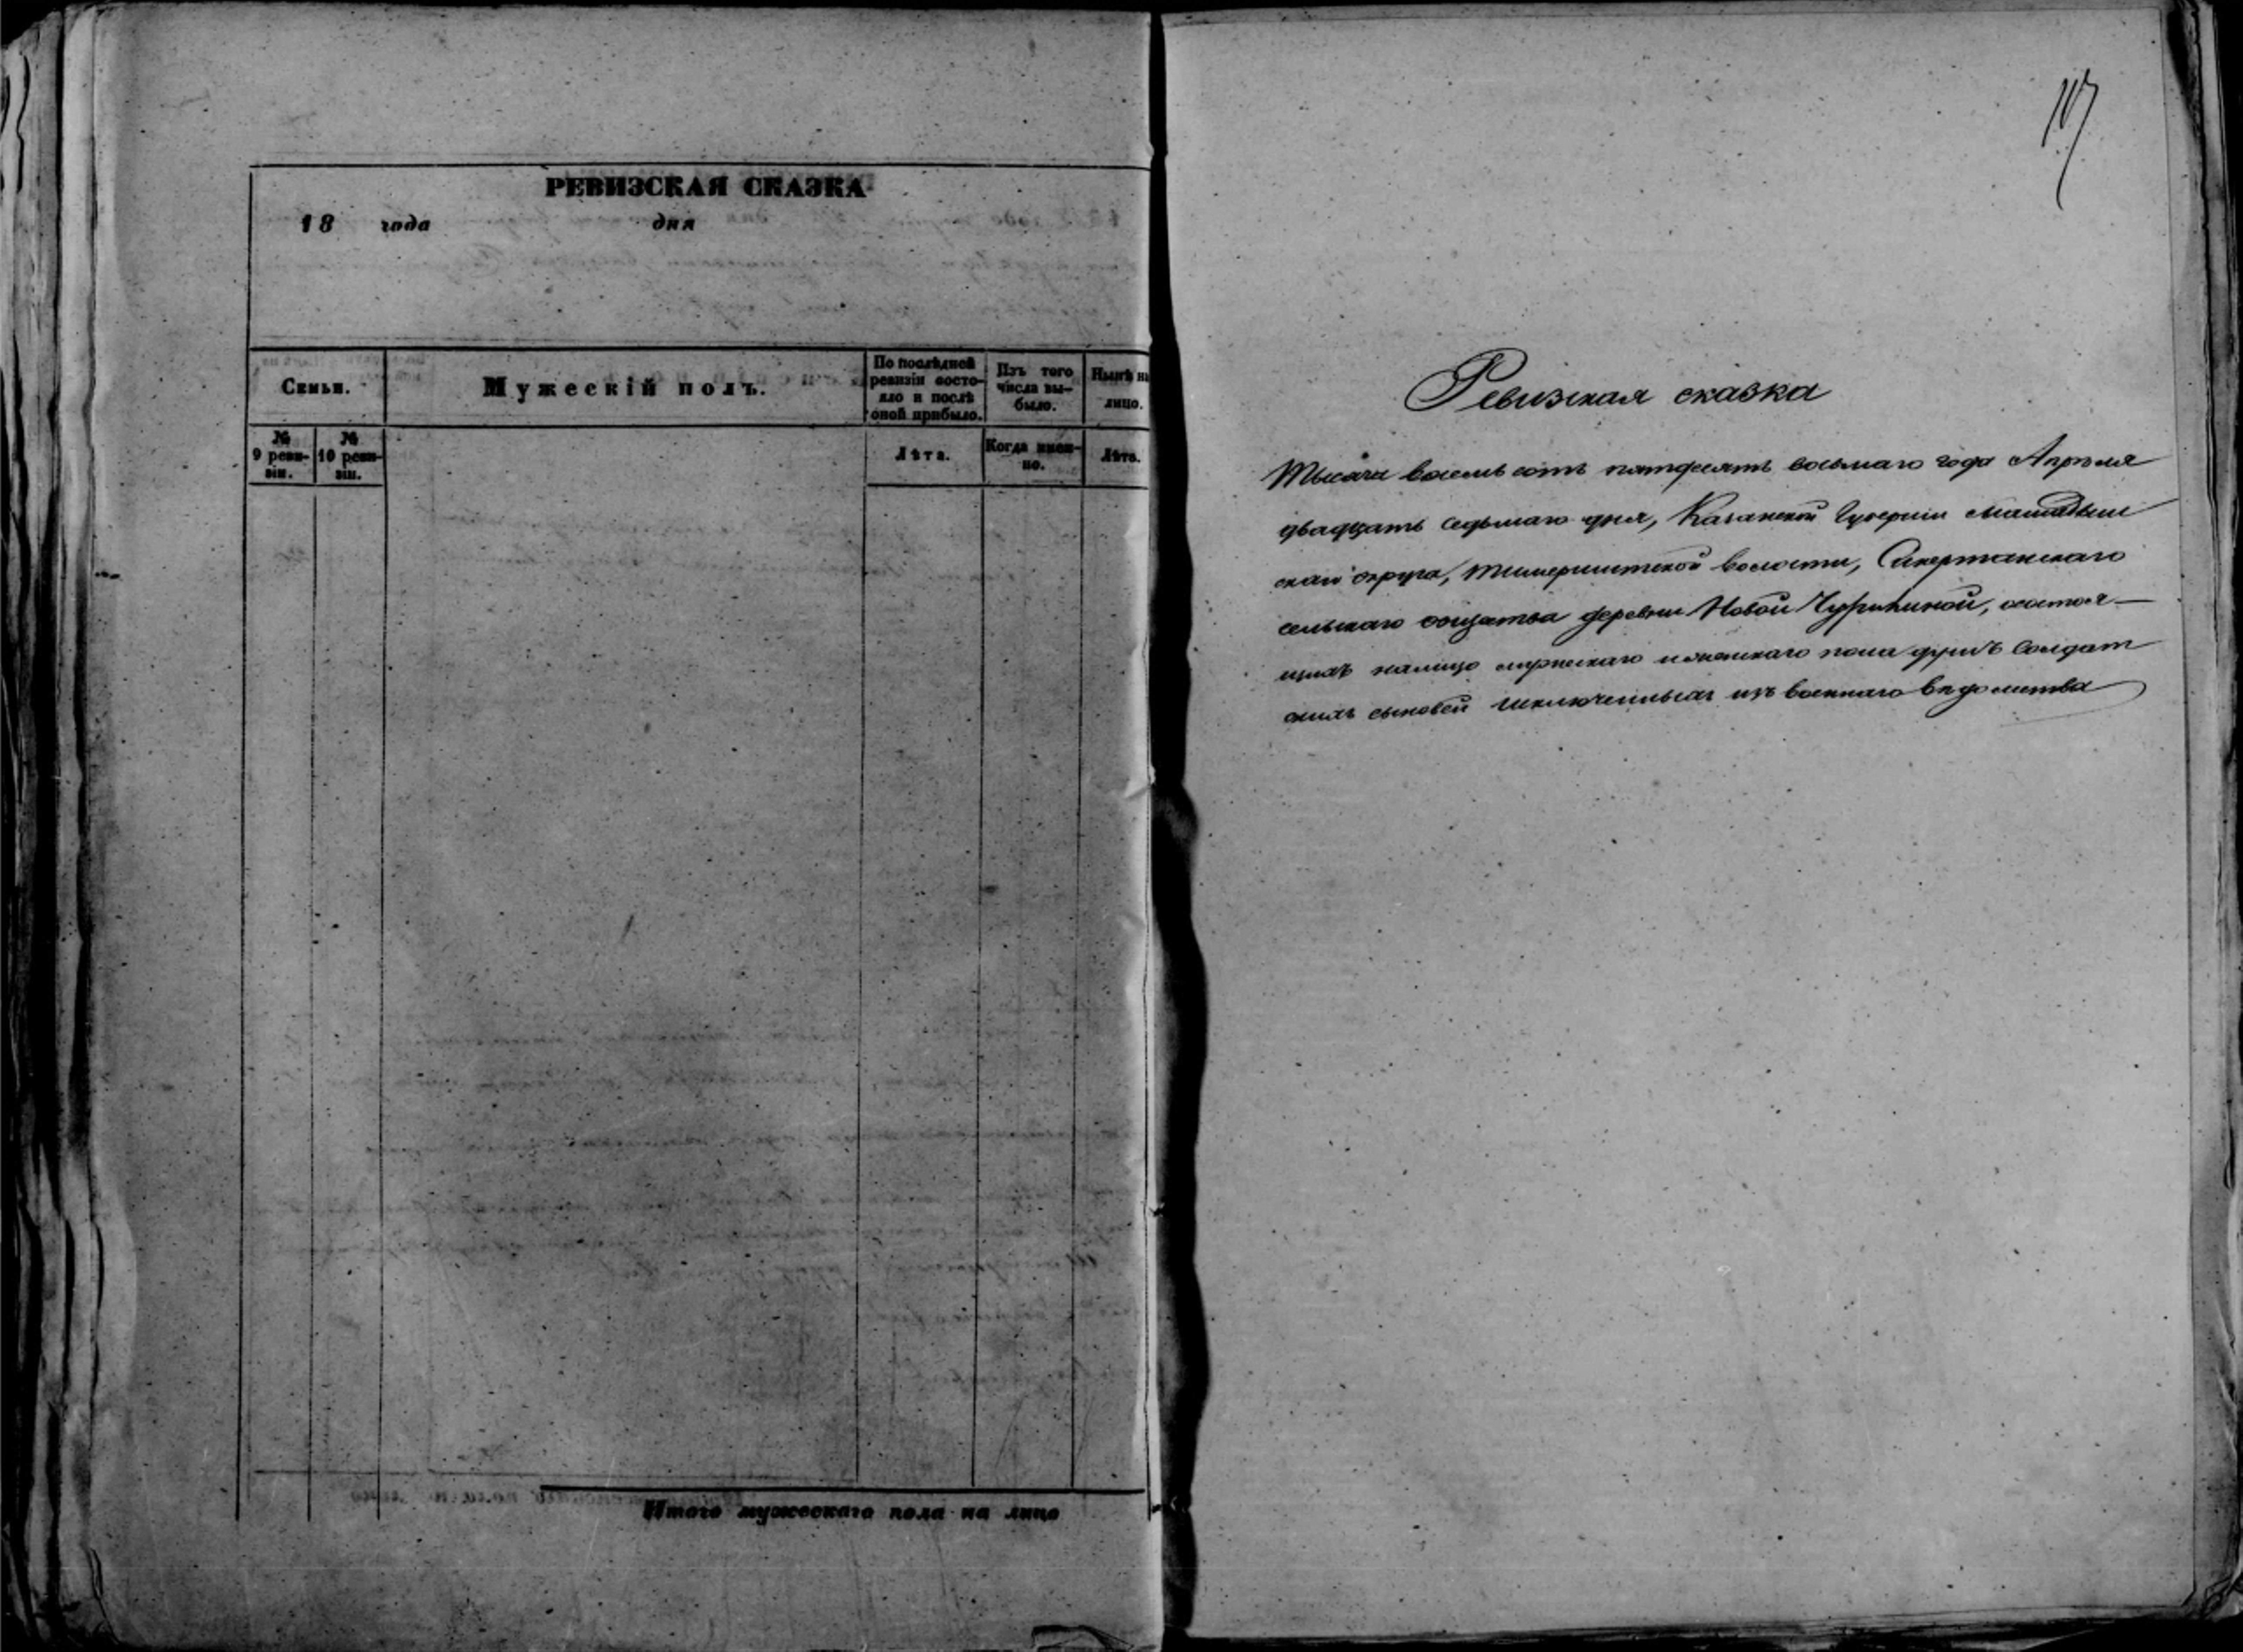 РЕВИЗСКАЯ СКАЗКА
18 года дня
Семьи.
Мужескій полъ.
По послѣдней
ревизіи состо-
яло и послѣ
оной прибыло.
Изъ того
числа вы-
было.
Нынѣ на
лицо.
№
9 реви-
зіи.
№
10 реви-
зіи.
Лѣта.
Когда имен-
но.
Лѣта.
Итого мужескаго пола на лицо
107
Ревизская сказка
Тысяча восемь сотъ пятдесятъ восьмаго года Апрѣля
двадцать седьмаго дня, Казанской Губерніи Мамадыш
скаго округа, волости, Сикертанскаго
сельскаго общества деревни Новой Чурилиной, состоя-
щихъ налицо мужескаго и женскаго пола душъ Солдат
скихъ сыновей исключенныхъ изъ военнаго вѣдомства